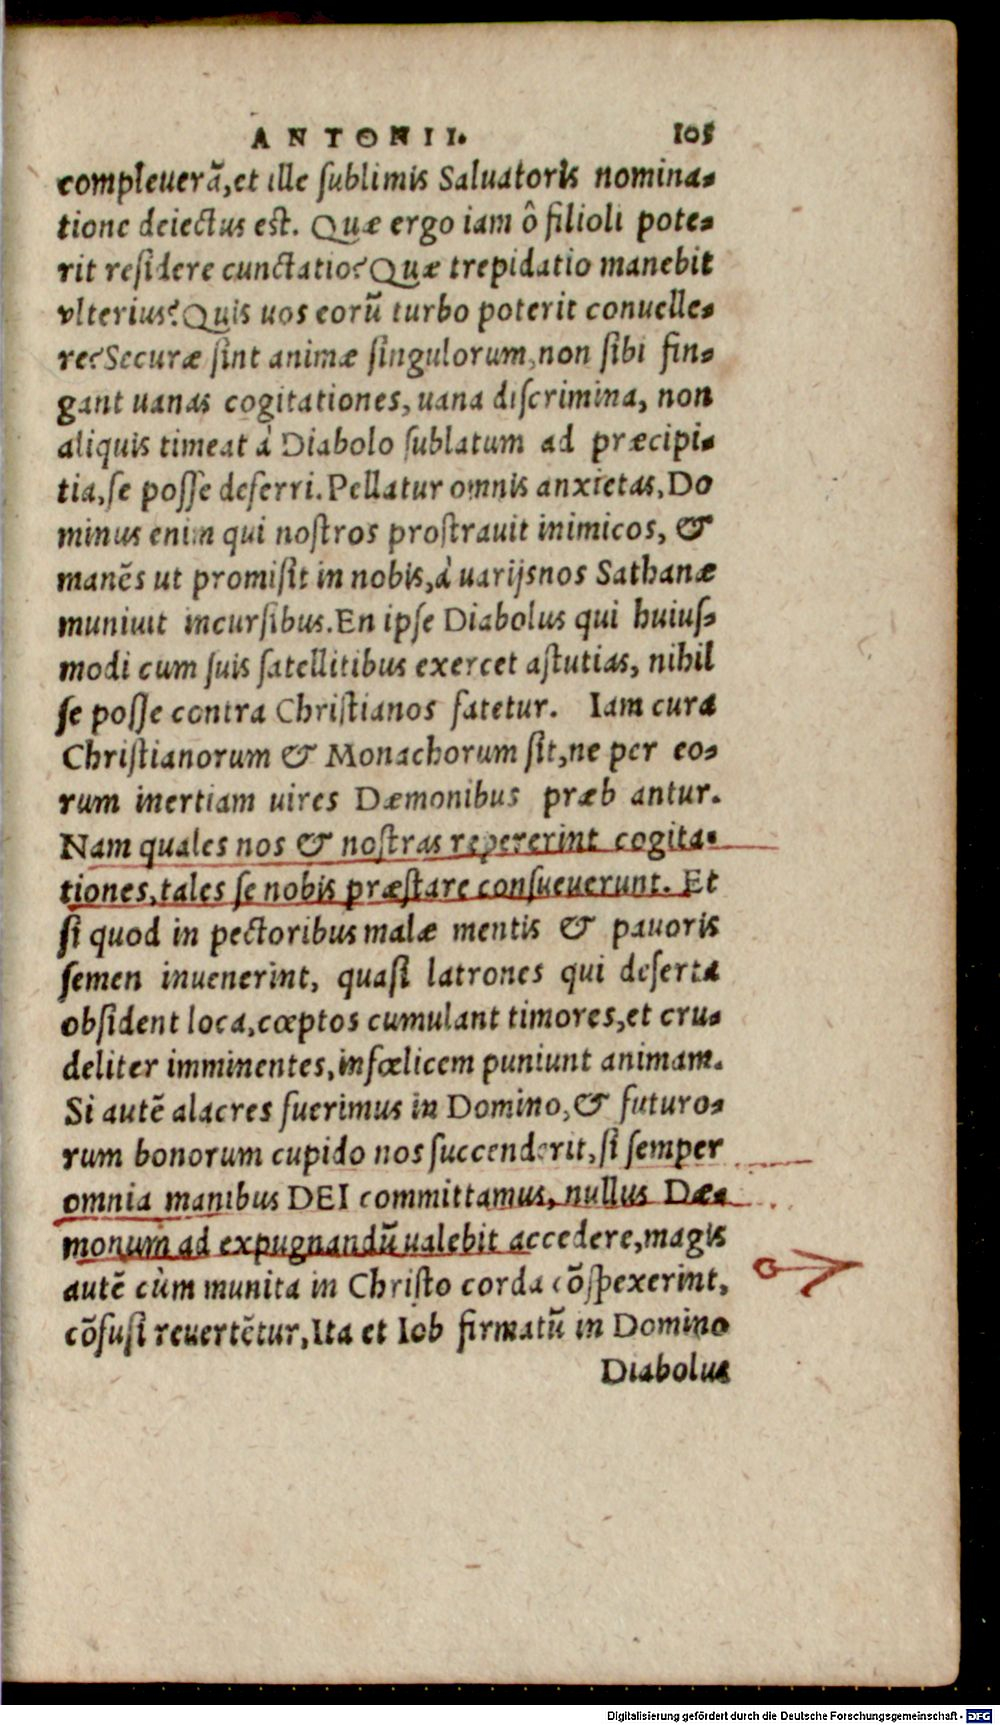 ANTONII. 105
compleuerã,et ille ſublimis Saluatoris nomina-
tione deiectus est. Quæ ergo iam ô filioli pote-
rit reſidere cunctatio? Quæ trepidatio manebit
vlterius? Quis uos eorũ turbo poterit conuelle-
re? Securæ ſint animæ ſingulorum, non ſibi fin-
gant uanas cogitationes, uana diſcrimina, non
aliquis timeat à Diabolo ſublatum ad præcipi-
tia,ſe poſſe deferri. Pellatur omnis anxietas, Do
minus enim qui noſtros proſtrauit inimicos, &
manẽs ut promiſit in nobis, à uarijs nos Sathanæ
muniuit incurſibus. En ipſe Diabolus qui huiuſ-
modi cum ſuis ſatellitibus exercet aſtutias, nihil
ſe poſſe contra Chriſtianos fatetur. Iam cura
Chriſtianorum & Monachorum ſit, ne per eo-
rum inertiam uires Dæmonibus præb antur.
Nam quales nos & noſtras repererint cogita-
tiones, tales ſe nobis præſtare conſueuerunt. Et
ſi quod in pectoribus malæ mentis & pauoris
ſemen inuenerint, quaſi latrones qui deſerta
obſident loca, cœptos cumulant timores, et cru-
deliter imminentes, infœlicem puniunt animam.
Si autẽ alacres fuerimus in Domino, & futuro-
rum bonorum cupido nos ſuccenderit, ſi ſemper
omnia manibus DEI committamus, nullus Dæ-
monum ad expugnandũ ualebit accedere, magis
autẽ cùm munita in Chriſto corda cõſpexerint,
cõfuſi reuertẽtur, Ita et Iob firmatũ in Domino
Diabolus
Digitalisierung gefördert durch die Deutsche Forschungsgemeinschaft - DFG